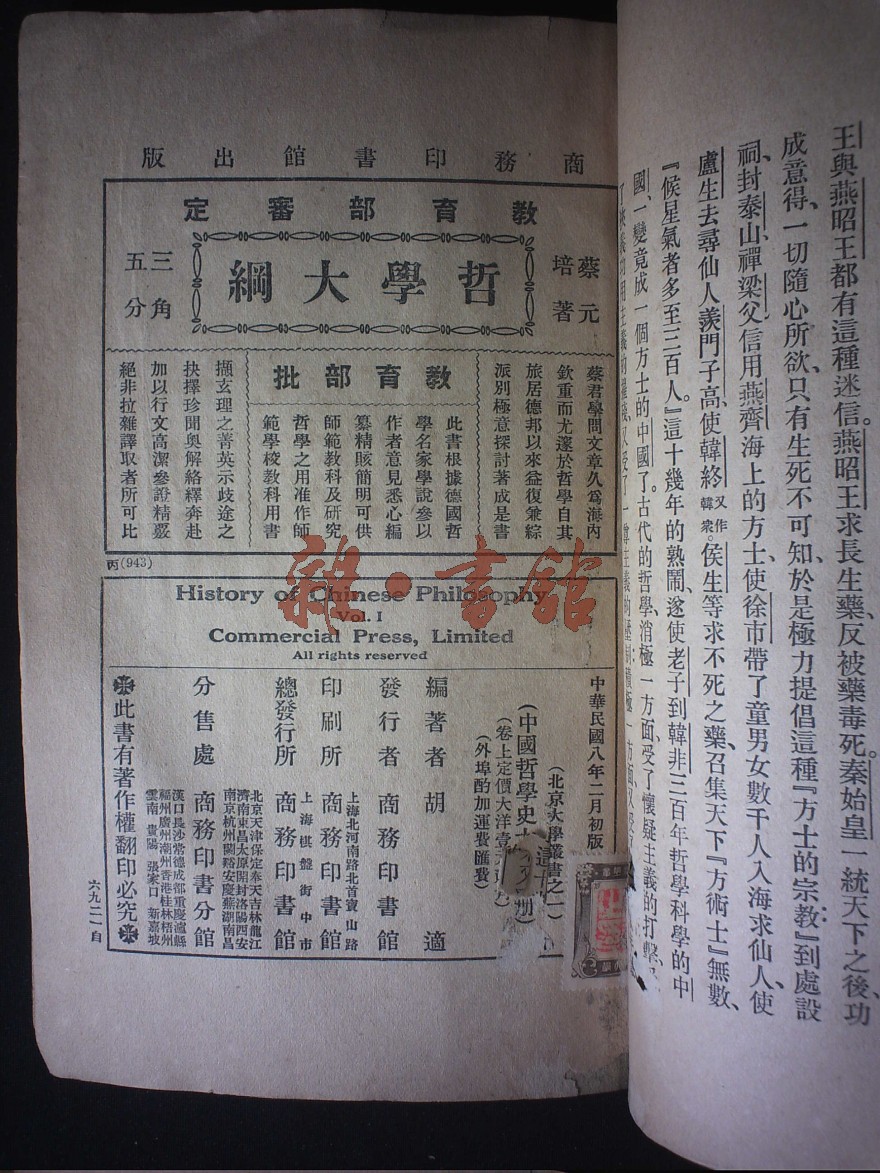 王與燕昭王都有這種迷信。燕昭王求長生藥、反被藥毒死。秦始皇一統天下之後、功
成意得、一切隨心所欲、只有生死不可知、於是極力提倡這種『方士的宗教』：到處設
祠、封泰山、禪梁父、信用燕齊海上的方士、使徐市帶了童男女數千人入海求仙人、使
盧生去尋仙人羨門子高、使韓終又作韓衆。侯生等求不死之藥、召集天下『方術士』無數、
『候星氣者多至三百人。』這十幾年的熱鬧、遂使老子到韓非三百年哲學科學的中
國、一變竟成一個方士的中國了。古代的哲學、消極一方面、受了懷疑主義的打擊、
商務印書館出版
教育部審定
蔡元培著
哲學大綱
三角五分
蔡君學問文章久爲海內
欽重而尤邃於哲學自其
旅居德邦以來益復兼綜
派別極意探討著成是書
教育部批
此書根據德國哲
學名家學說參以
作者意見悉心編
纂精賅簡明可供
師範教科及研究
哲學之用准作師
範學校教科用書
擷玄理之菁英示歧途之
抉擇珍聞奧解絡繹奔赴
加以行文高潔參證精嚴
絕非拉雜譯取者所可比
丙(943)
History of Chinese Philosophy
Vol. I
Commercial Press, Limited
All rights reserved
中華民國八年二月初版
(北京大學叢書之一)
(中國哲學史大
(卷上定價大洋壹
(外埠酌加運費匯費)
編著者 胡適
發行者 商務印書館
上海北河南路北首寶山路
印刷所 商務印書館
上海棋盤街中市
總發行所 商務印書館
北京天津保定奉天吉林龍江
濟南東昌太原開封洛陽西安
南京杭州蘭谿安慶蕪湖南昌
分售處 商務印書分館
漢口長沙常德成都重慶瀘縣
福州廣州潮州香港桂林梧州
雲南貴陽張家口新嘉坡
此書有著作權翻印必究
六九二一自
雜·書館